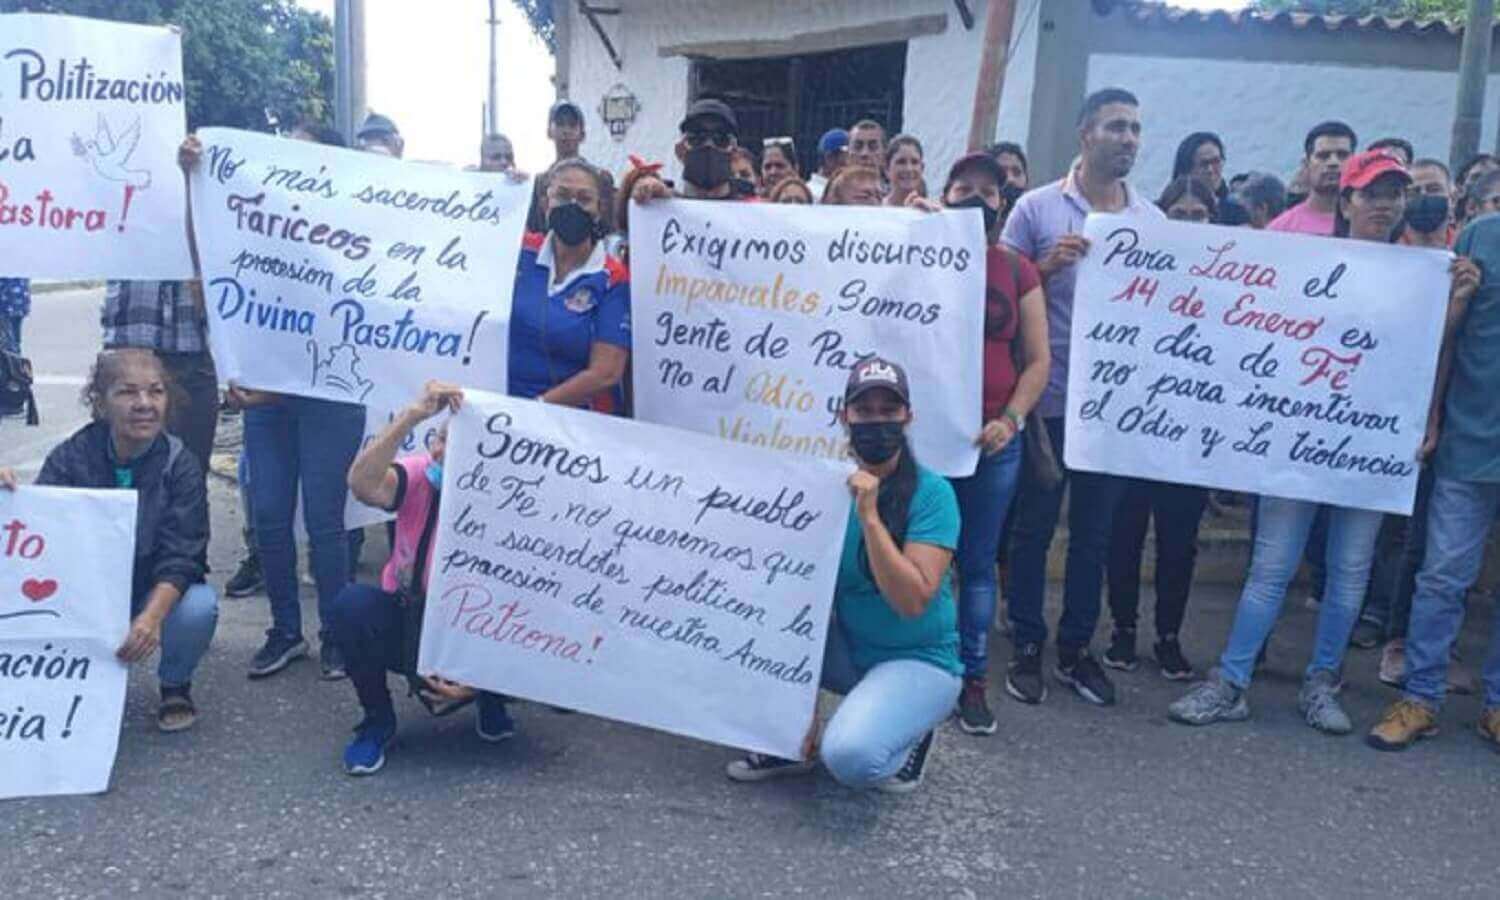 Politización
La
Pastora!
No más sacerdotes
Fariceos en la
procesion de la
Divina Pastora!
Exigimos discursos
Impaciales, Somos
gente de Paz
No al Odio y
Violencia
Para Lara el
14 de Enero es
un dia de Fé
no para incentivar
el Odio y La Violencia
Somos un pueblo
de Fé, no queremos que
los sacerdotes politicen la
procesion de nuestra Amada
Patrona!
FILA